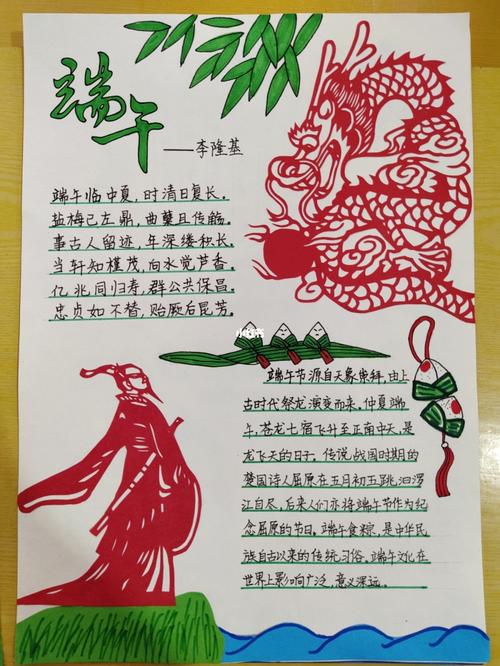 端午
——李隆基
端午临中夏，时清日复长。
盐梅已左鼎，曲糵且传觞。
事古人留迹，年深缕积长。
当轩知槿茂，向水觉芦香。
亿兆同归寿，群公共保昌。
忠贞如不替，贻厥后昆芳。
小红书
端午节源自天象崇拜，由上
古时代祭龙演变而来。仲夏端
午，苍龙七宿飞升至正南中天，是
龙飞天的日子，传说战国时期的
楚国诗人屈原在五月初五跳汨罗
江自尽，后来人们亦将端午节作为纪
念屈原的节日。端午食粽，是中华民
族自古以来的传统习俗，端午文化在
世界上影响广泛，意义深远。